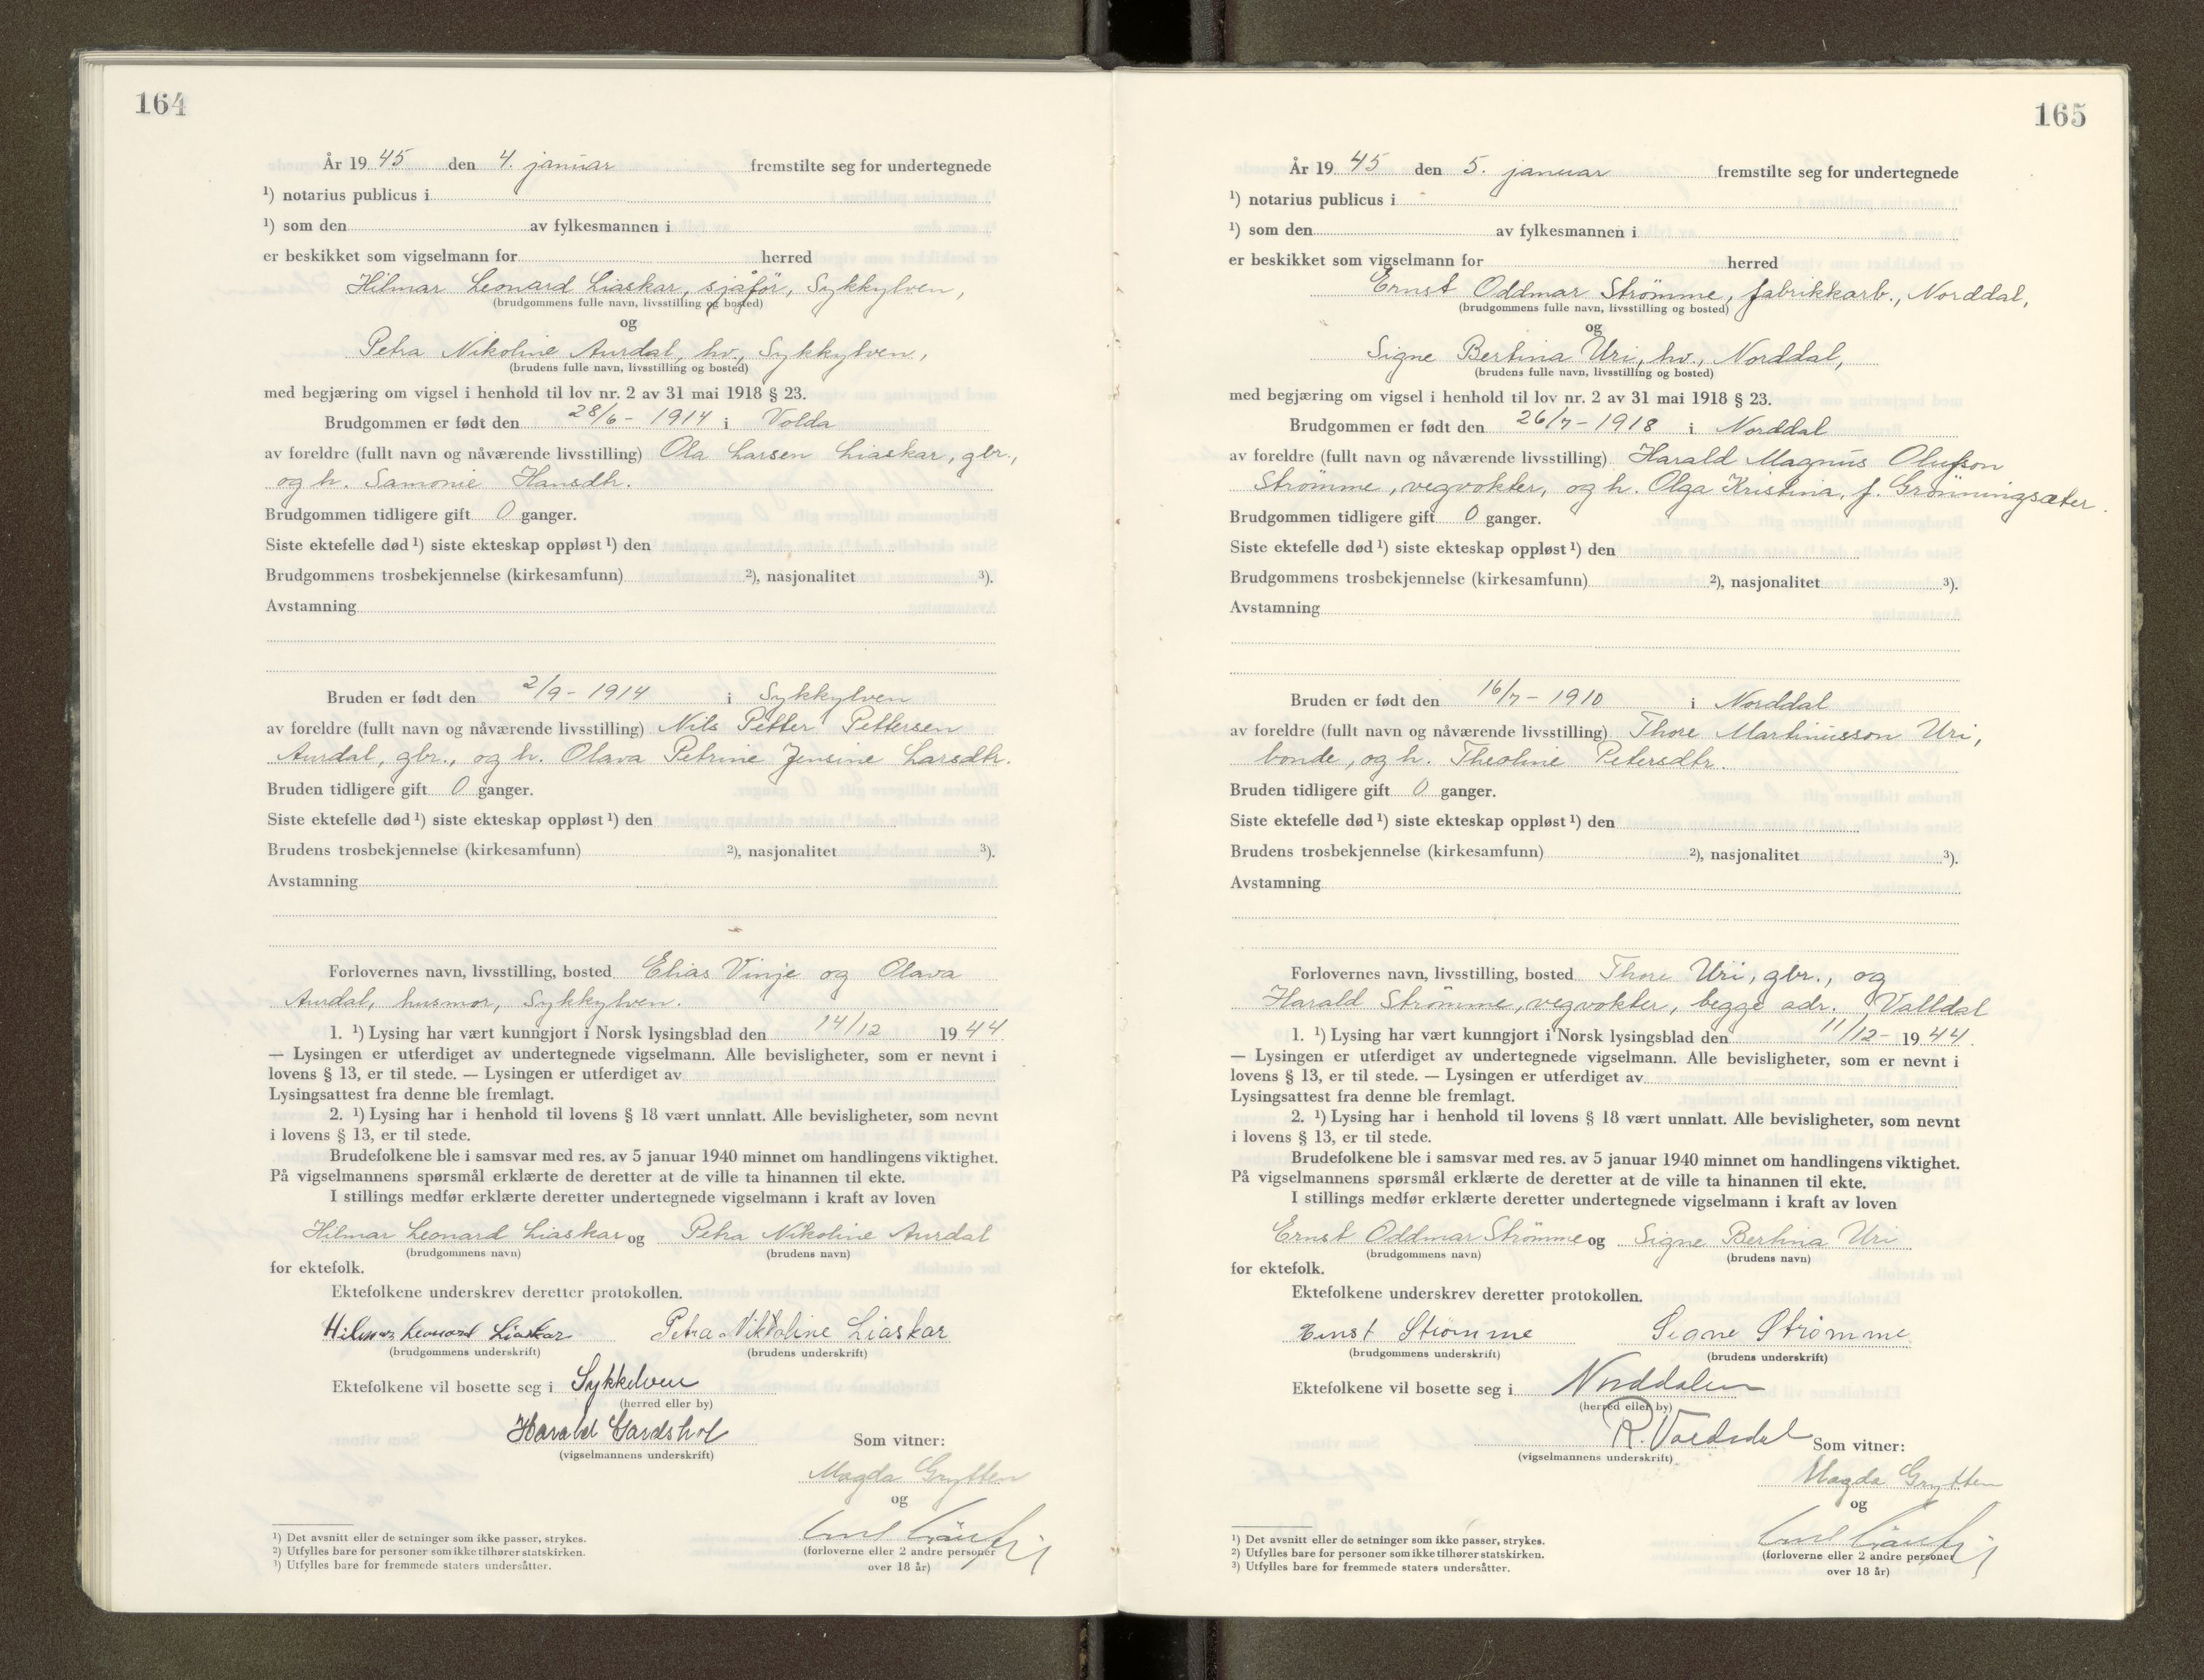 164
År 19 45 den 4. januar fremstilte seg for undertegnede
¹) notarius publicus i
¹) som den av fylkesmannen i
er beskikket som vigselmann for herred
Hilmar Leonard Liaskar, sjåfør, Sykkylven,
(brudgommens fulle navn, livsstilling og bosted)
og
Petra Nikoline Aurdal, hv., Sykkylven,
(brudens fulle navn, livsstilling og bosted)
med begjæring om vigsel i henhold til lov nr. 2 av 31 mai 1918 § 23.
Brudgommen er født den 28/6 - 1914 i Volda
av foreldre (fullt navn og nåværende livsstilling) Ola Larsen Liaskar, gbr.,
og h. Samonie Hansdtr.
Brudgommen tidligere gift 0 ganger.
Siste ektefelle død ¹) siste ekteskap oppløst ¹) den
Brudgommens trosbekjennelse (kirkesamfunn) ²), nasjonalitet ³).
Avstamning
Bruden er født den 2/9 - 1914 i Sykkylven
av foreldre (fullt navn og nåværende livsstilling) Nils Petter Pettersen
Aurdal, gbr., og h. Olava Petrine Jensine Larsdtr.
Bruden tidligere gift 0 ganger.
Siste ektefelle død ¹) siste ekteskap oppløst ¹) den
Brudens trosbekjennelse (kirkesamfunn) ²), nasjonalitet ³).
Avstamning
Forlovernes navn, livsstilling, bosted Elias Vinje og Olava
Aurdal, husmor, Sykkylven.
1. ¹) Lysing har vært kunngjort i Norsk lysingsblad den 14/12 19 44.
— Lysingen er utferdiget av undertegnede vigselmann. Alle bevisligheter, som er nevnt i
lovens § 13, er til stede. — Lysingen er utferdiget av
Lysingsattest fra denne ble fremlagt.
2. ¹) Lysing har i henhold til lovens § 18 vært unnlatt. Alle bevisligheter, som nevnt
i lovens § 13, er til stede.
Brudefolkene ble i samsvar med res. av 5 januar 1940 minnet om handlingens viktighet.
På vigselmannens spørsmål erklærte de deretter at de ville ta hinannen til ekte.
I stillings medfør erklærte deretter undertegnede vigselmann i kraft av loven
Hilmar Leonard Liaskar og Petra Nikoline Aurdal
(brudgommens navn) (brudens navn)
for ektefolk.
Ektefolkene underskrev deretter protokollen.
Hilmar Leonard Liaskar Petra Nikoline Liaskar
(brudgommens underskrift) (brudens underskrift)
Ektefolkene vil bosette seg i Sykkelven
(herred eller by)
Harald Gardshol
(vigselmannens underskrift)
Som vitner:
Magda Grytten
og
(forloverne eller 2 andre personer
over 18 år)
¹) Det avsnitt eller de setninger som ikke passer, strykes.
²) Utfylles bare for personer som ikke tilhører statskirken.
³) Utfylles bare for fremmede staters undersåtter.
165
År 19 45 den 5. januar fremstilte seg for undertegnede
¹) notarius publicus i
¹) som den av fylkesmannen i
er beskikket som vigselmann for herred
Ernst Oddmar Strømme, fabrikkarb., Norddal,
(brudgommens fulle navn, livsstilling og bosted)
og
Signe Bertina Uri, hv., Norddal,
(brudens fulle navn, livsstilling og bosted)
med begjæring om vigsel i henhold til lov nr. 2 av 31 mai 1918 § 23.
Brudgommen er født den 26/7 - 1918 i Norddal
av foreldre (fullt navn og nåværende livsstilling) Harald Magnus Olufson
Strømme, vegvokter, og h. Olga Kristina, f. Grønningsæter.
Brudgommen tidligere gift 0 ganger.
Siste ektefelle død ¹) siste ekteskap oppløst ¹) den
Brudgommens trosbekjennelse (kirkesamfunn) ²), nasjonalitet ³).
Avstamning
Bruden er født den 16/7 - 1910 i Norddal
av foreldre (fullt navn og nåværende livsstilling) Thore Martinusson Uri,
bonde, og h. Theoline Petersdtr.
Bruden tidligere gift 0 ganger.
Siste ektefelle død ¹) siste ekteskap oppløst ¹) den
Brudens trosbekjennelse (kirkesamfunn) ²), nasjonalitet ³).
Avstamning
Forlovernes navn, livsstilling, bosted Thore Uri, gbr., og
Harald Strømme, vegvokter, begge adr. Valldal
1. ¹) Lysing har vært kunngjort i Norsk lysingsblad den 11/12 - 19 44.
— Lysingen er utferdiget av undertegnede vigselmann. Alle bevisligheter, som er nevnt i
lovens § 13, er til stede. — Lysingen er utferdiget av
Lysingsattest fra denne ble fremlagt.
2. ¹) Lysing har i henhold til lovens § 18 vært unnlatt. Alle bevisligheter, som nevnt
i lovens § 13, er til stede.
Brudefolkene ble i samsvar med res. av 5 januar 1940 minnet om handlingens viktighet.
På vigselmannens spørsmål erklærte de deretter at de ville ta hinannen til ekte.
I stillings medfør erklærte deretter undertegnede vigselmann i kraft av loven
Ernst Oddmar Strømme og Signe Bertina Uri
(brudgommens navn) (brudens navn)
for ektefolk.
Ektefolkene underskrev deretter protokollen.
Ernst Strømme Signe Strømme
(brudgommens underskrift) (brudens underskrift)
Ektefolkene vil bosette seg i Norddalen
(herred eller by)
(vigselmannens underskrift)
Som vitner:
Magda Grytten
og
(forloverne eller 2 andre personer
over 18 år)
¹) Det avsnitt eller de setninger som ikke passer, strykes.
²) Utfylles bare for personer som ikke tilhører statskirken.
³) Utfylles bare for fremmede staters undersåtter.